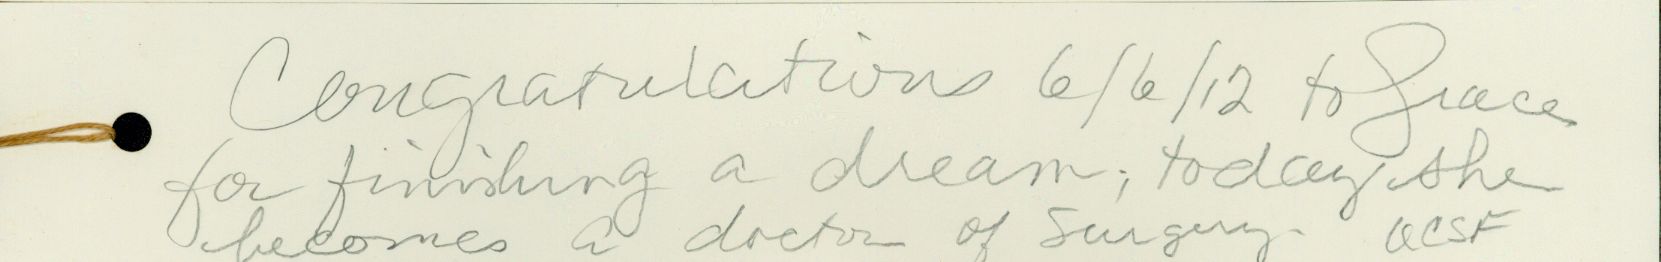 Congratulations 6/6/12 to Grace
for finishing a dream; today she
becomes a doctor of surgery. UCSF